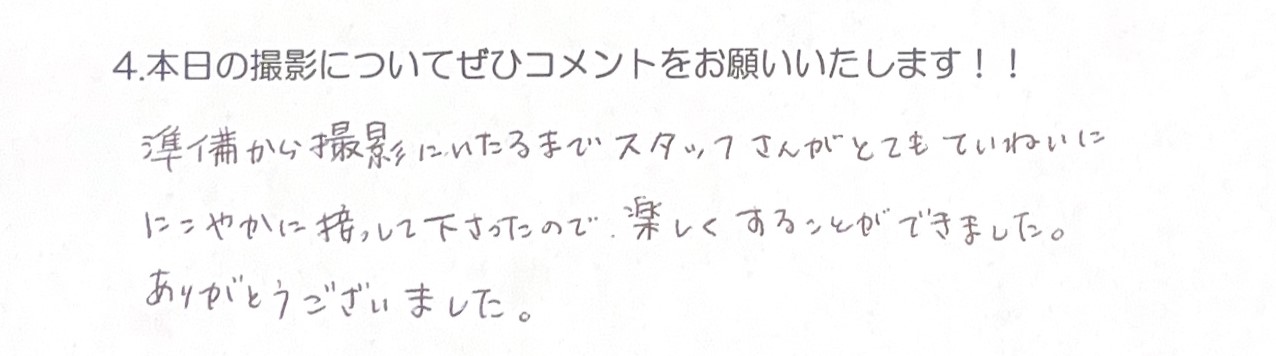 4.本日の撮影についてぜひコメントをお願いいたします！！
準備から撮影にいたるまでスタッフさんがとてもていねいに
にこやかに接っして下さったので、楽しくすることができました。
ありがとうございました。